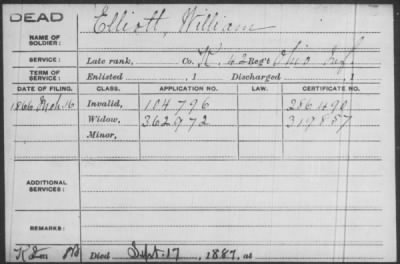 DEAD
NAME OF SOLDIER: Elliott, William
SERVICE: Late rank, Co. K. 42 Reg't Ohio Inf.
TERM OF SERVICE: Enlisted , 1 Discharged , 1
DATE OF FILING. CLASS. APPLICATION NO. LAW. CERTIFICATE NO.
1866 Mch. 16 Invalid, 104796
Widow, 362972
Minor,
ADDITIONAL SERVICES:
REMARKS:
Died Sept. 17, 1887, at